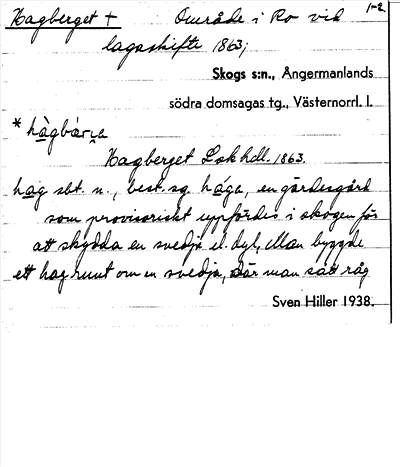 Hagberget + Område i Ro vid 1-2
lagaskifte 1863;
Skogs s:n., Ångermanlands
södra domsagas tg., Västernorrl. l.
* hàgbárᶇa
Hagberget Lskhdl. 1863.
hag sbt. n., best. sg. hága, en gärdesgård
som provisoriskt uppfördes i skogen för
att skydda en svedja el. dyl. Man byggde
ett hag runt om en svedja, där man sått råg
Sven Hiller 1938.